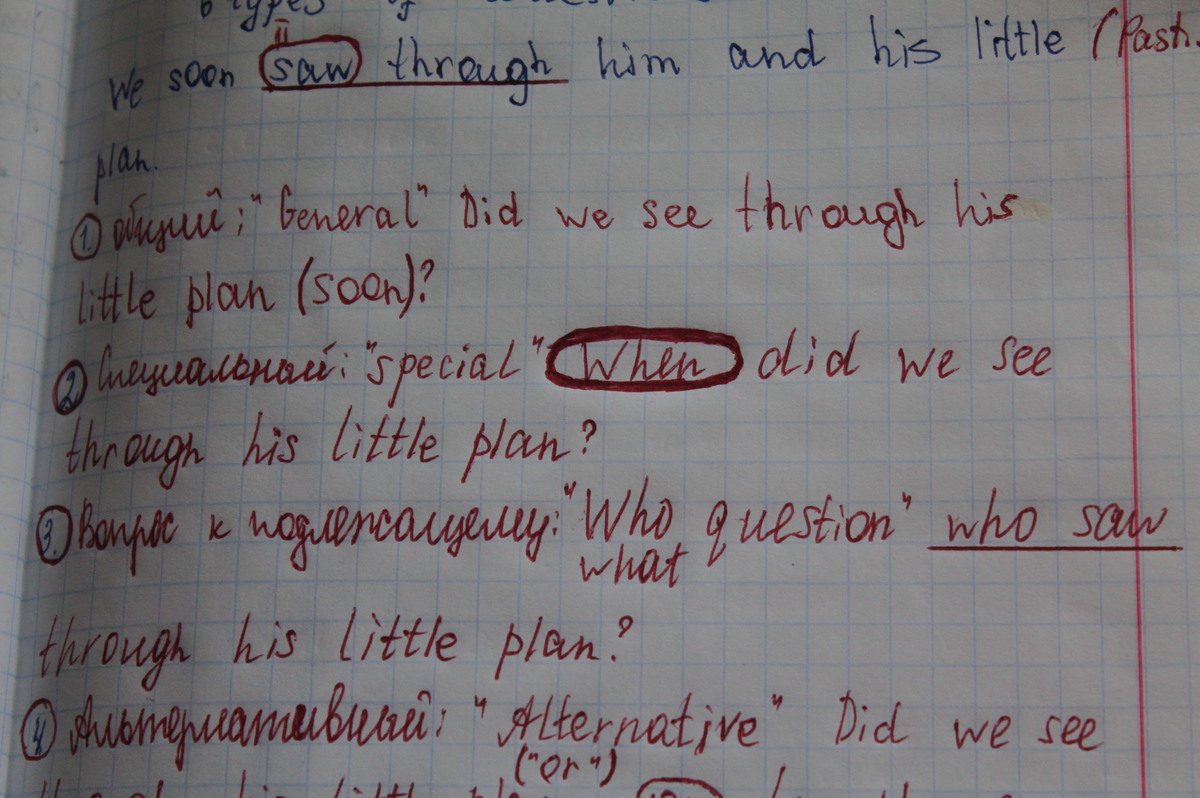 types of
II
We soon saw through him and his little (Past.
plan.
1. Общий: "General" Did we see through his
little plan (soon)?
2 Специальный: "special" When did we see
through his little plan?
3. Вопрос к подлежащему: "Who question" who saw
what
through his little plan?
4 Альтернативный: "Alternative" Did we see
("or")
his little